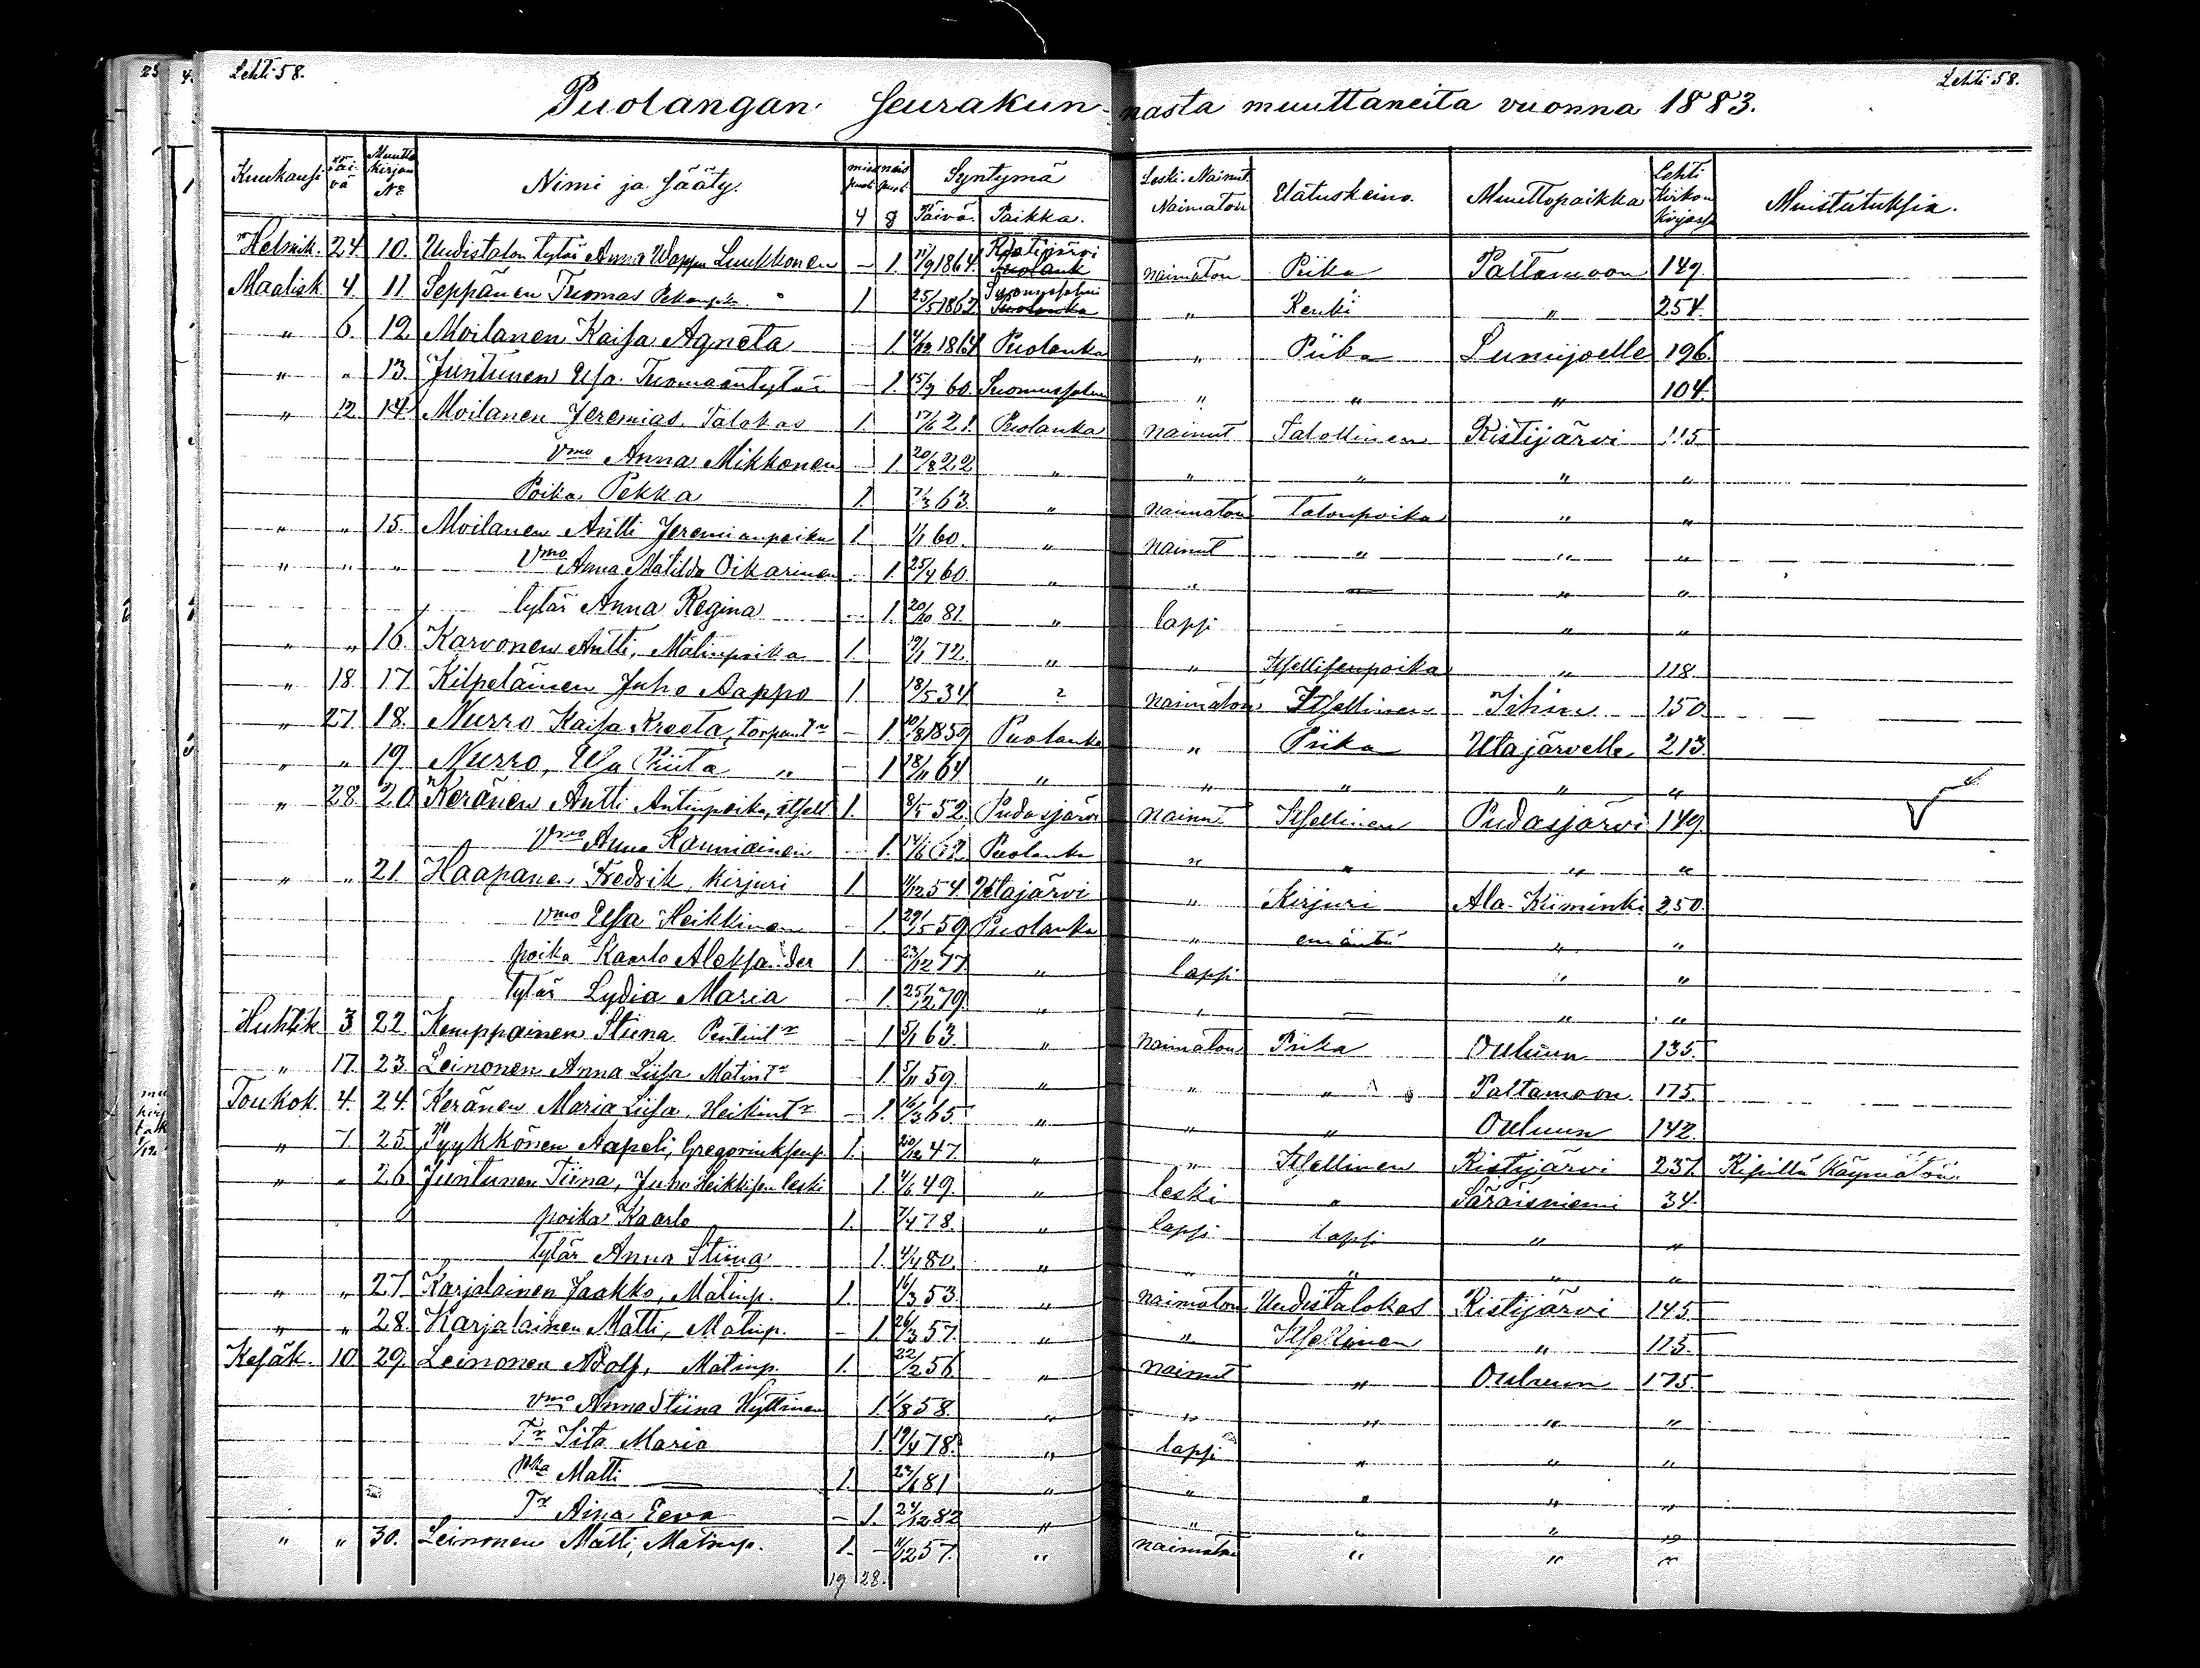 Lehti 58.
Lehti 58.
Puolangan Seurakunnasta muuttaneita vuonna 1883.
Kuukausi. Päivä Muuttokirjan No Nimi ja Sääty. miespuol naispuol Syntymä Leski. Nainut. Naimaton Elatuskeino. Muuttopaikka Lehti Kirkonkirjassa Muistutuksia.
4 8 Päivä. Paikka.
Helmik. 24 10. Uudistalon tytär Anna Wappu Luukkonen – 1. 11/9 1864 Ristijärvi naimaton Piika Paltamoon 149
Maalisk. 4. 11 Seppänen Tuomas 1 25/5 1862 Suomussalmi " Renki " 254.
" 6. 12 Moilanen Kaisa Agneta – 1. 1864 Puolanka " Piika Lumijoelle 196.
" " 13. Juntunen Elsa Tuomaantytär – 1. 15/7 60. Suomussalmi " " " 104.
" 12 14. Moilanen Jeremias Talokas 1. 21. Puolanka nainut Talollinen Ristijärvi 115
Vmo Anna Mikkonen – 1. 20/8 22 " " " " "
Poika Pekka 1. 63. " naimaton Talonpoika " "
" " 15. Moilanen Antti Jeremianpoika 1 1/1 60. " nainut " " "
" " " Vmo Anna Matilda Oikarinen – 1. 25/4 60. " " — " "
tytär Anna Regina – 1. 20/10 81. " lapsi – " "
" " 16. Karvonen Antti, Matinpoika 1. 72. " " Itsellisenpoika " 118.
" 18. 17. Kilpeläinen Juho Aappo 1. 18/5 34 ? naimaton Itsellinen Iihin 150
" 27. 18. Nurro Kaisa Kreeta, torpant:r – 1. 10/8 1859 Puolanka " Piika Utajärvelle 213.
" " 19. Nurro, Elsa Priita " – 1 18/11 64. " " " " "
" 28. 20 Keränen Antti Antinpoika, itsell 1. 8/5 52. Pudasjärvi nainut Itsellinen Pudasjärvi 149.
Vmo Anna Kauniainen – 1. Puolanka " " " "
" " 21. Haapana, Fredrik, Kirjuri 1 54. Utajärvi " Kirjuri Ala-Kiiminki 250.
vmo Elsa Heikkinen – 1. 29/5 59 Puolanka " emäntä " "
poika Kaarlo Aleksander 1. 23/12 77 " lapsi – " "
tytär Lydia Maria – 1. 25/12 79. " " — " "
Huhtik. 3 22 Kemppainen Stiina Pentint:r – 1 5/1 63. " naimaton Piika Ouluun 135.
" 17. 23. Leinonen Anna Liisa Matint:r – 1. 5/11 59. " " " Paltamoon. 175.
Toukok. 4. 24. Keränen Maria Liisa, Heikint:r – 1. 16/3 65 " " " Ouluun 142.
" 7. 25. Pyykkönen Aapeli, 1. 20/12 47. " " Itsellinen Ristijärvi 237. Ripillä käymätön.
" " 26 Juntunen Tiina, Juho Heikkisen leski 1 4/6 49. " leski " Säräisniemi 34.
poika Kaarlo 1. 7/4 78. " lapsi lapsi " "
tytär Anna Stiina 1. 4/4 80. " " " " "
" " 27. Karjalainen Jaakko, Matinp. 1. 16/3 53. " naimaton Uudistalokas Ristijärvi 145.
" " 28. Karjalainen Matti, Matinp. – 1. 26/3 57. " " Itsellinen " 113.
Kesäk. 10. 29. Leinonen Adolf, Matinp. 1. 22/2 56. " nainut " Ouluun 175.
vmo Anna Stiina Hyttinen 1. 1/8 58. " " " " "
T:r Iita Maria 1. 19/4 78. " lapsi " " "
Pka Matti 1. 23/1 81 " " " " "
T:r Aina Eeva – 1. 24/12 82 " " " " "
" " 30. Leinonen Matti, Matinp. 1. – 57. " naimaton " " "
19 28.